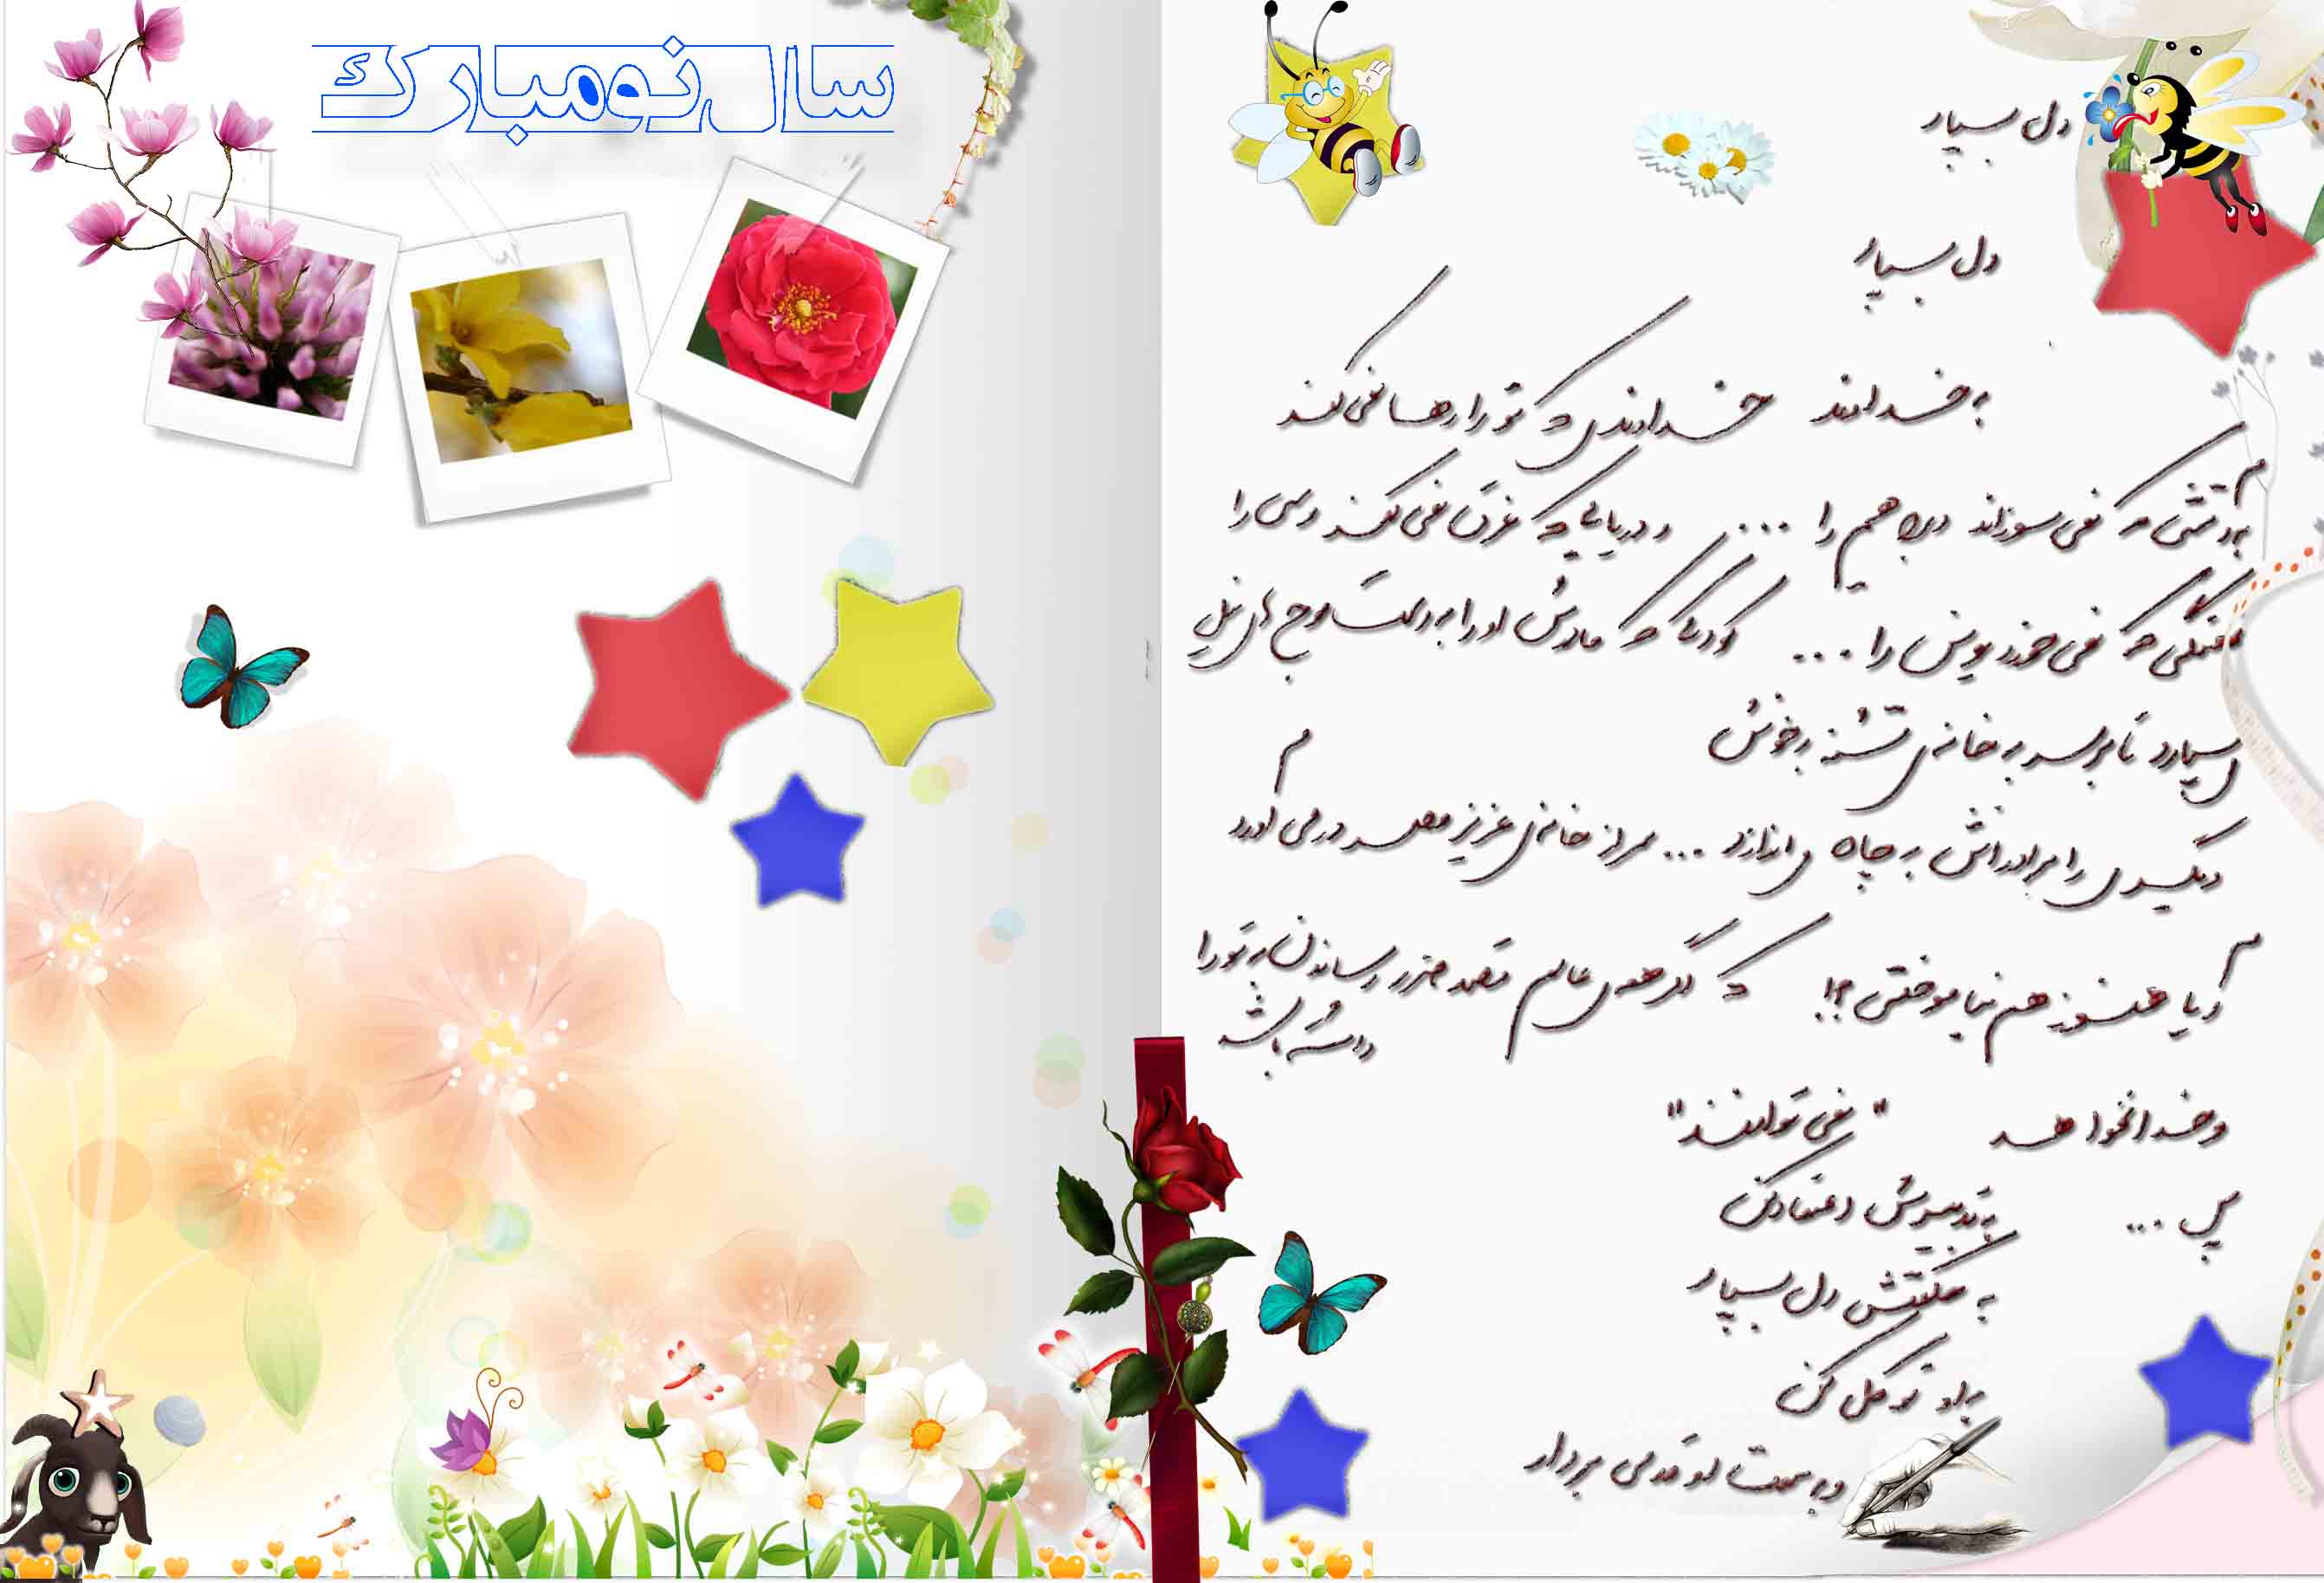 سال نو مبارک
دل بسپار
دل بسپار
به خداوند خداوندی که تو را رها نمی کند
به آتشی که نمی سوزاند ابراهیم را ... و دریایی که غرق نمی کند موسی را
نهنگی که نمی خورد یونس را ... کودکی که مادرش او را به دست موج های نیل
می سپارد تا برسد به خانه ی تشنه به خونش
دیگری را برادرانش به چاه می اندازند ... سر از خانه ی عزیز مصر در می آورد
آیا هنوز هم نیاموختی ؟! که اگر همه ی عالم قصد ضرر رساندن به تو را
داشته باشند
و خدا نخواهد " نمی توانند "
پس ... به تدبیرش اعتماد کن
به حکمتش دل بسپار
به او توکل کن
و به سمت او قدمی بردار